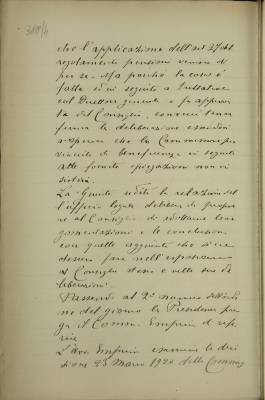 che l'applicazione dell'art 27 del
regolamento pensioni venisse di
per se. Ma poiché la cosa è
fatta ed in seguito a trattative
col Direttore generale e fu approva-
ta dal Consiglio, conviene tener
ferma la deliberazione
sperare che la Commissione pro-
vinciale di beneficenza in seguito
alle fornite spiegazioni non in-
sisterà.
La Giunta udita la relazione del
l'ufficio legale delibera di propor
re al Consiglio di adottarne le ar
gomentazioni e le conclusioni
con quelle aggiunte che si cre
desse fare nell'esposizione
al Consiglio stesso e nella sua de
liberazione.
Passando al 2° numero dell'ordi
ne del giorno la Presidenza pre
ga il Comm. Emperio di rife
rire
L'Avv. Emperio esamina la deci
sione 23 Marzo 1920 della Commis